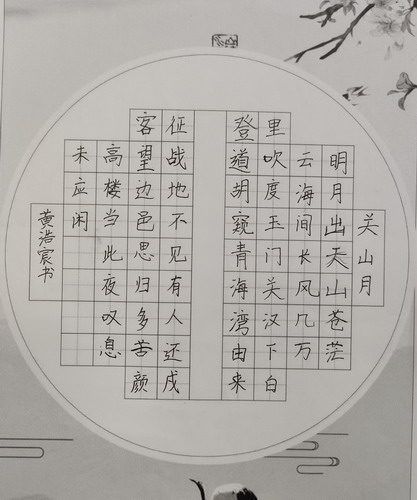 关山月
明月出天山苍茫
云海间长风几万
里吹度玉门关汉下白
登道胡窥青海湾由来
征战地不见有人还戍
客望边邑思归多苦颜
高楼当此夜叹息
未应闲
黄浩宸书